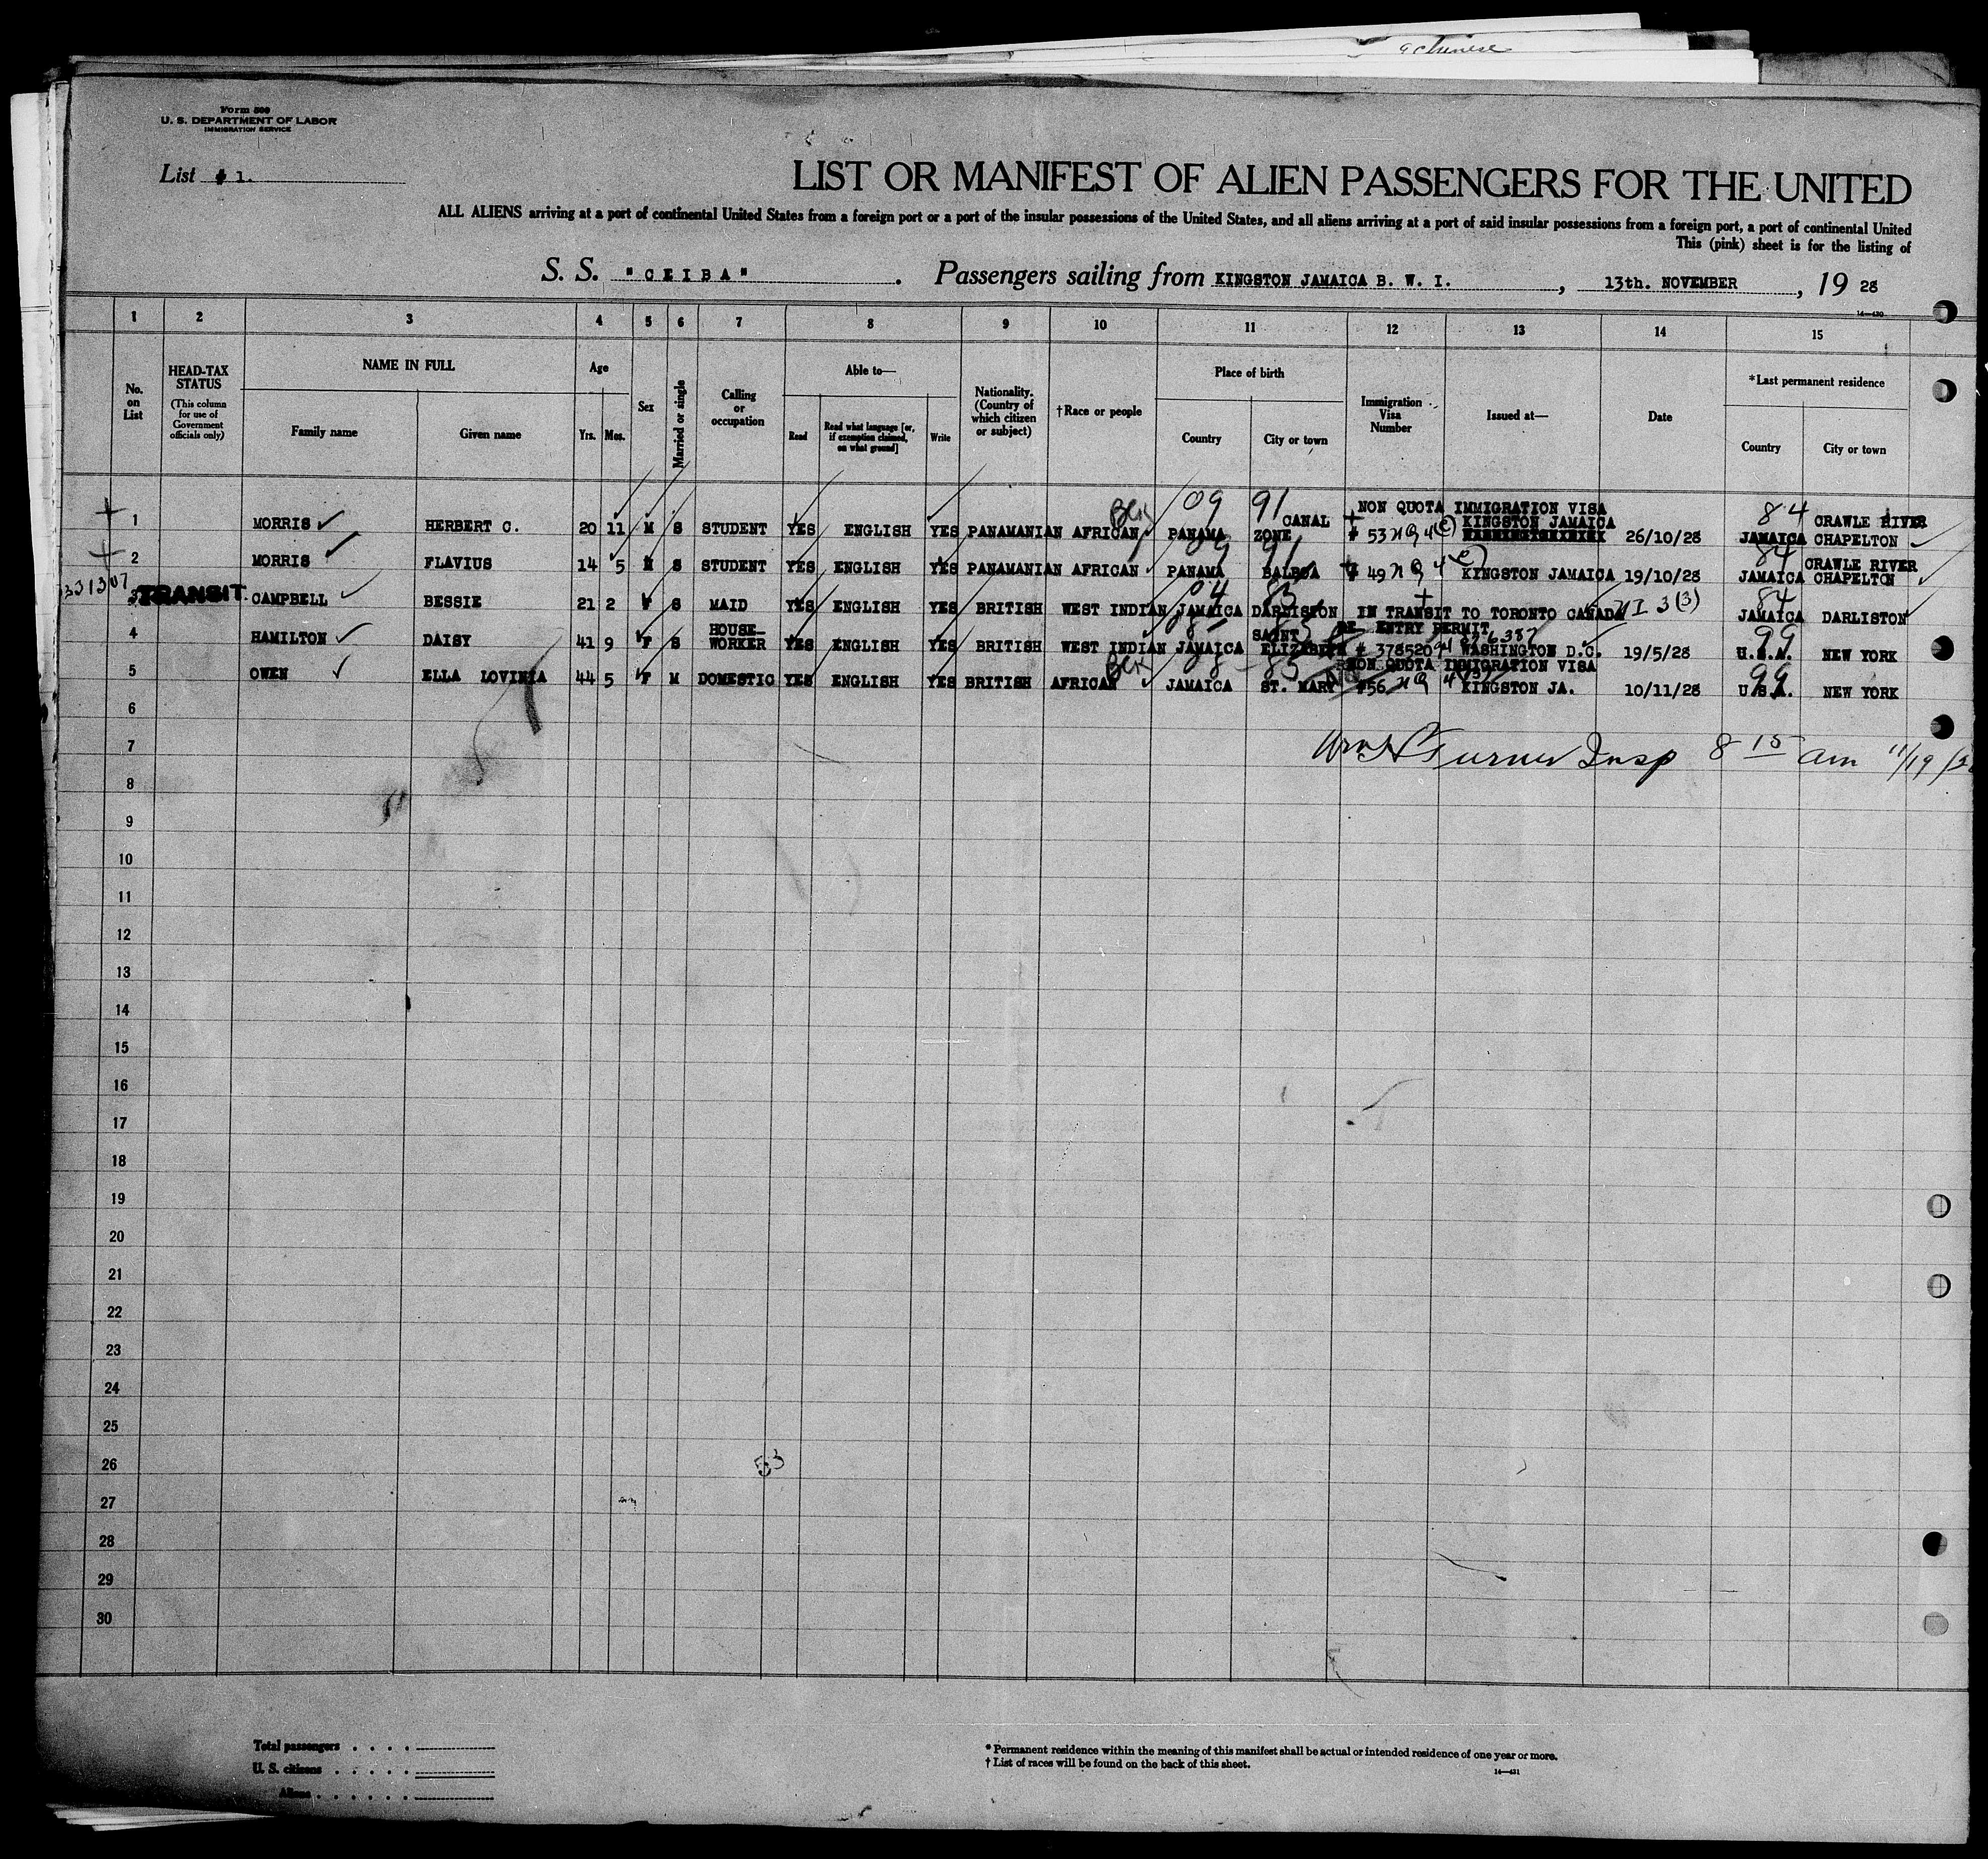 a Chinese
Form 500
U. S. DEPARTMENT OF LABOR
IMMIGRATION SERVICE
List # 1.
LIST OR MANIFEST OF ALIEN PASSENGERS FOR THE UNITED
ALL ALIENS arriving at a port of continental United States from a foreign port or a port of the insular possessions of the United States, and all aliens arriving at a port of said insular possessions from a foreign port, a port of continental United
This (pink) sheet is for the listing of
S. S. "CEIBA". Passengers sailing from KINGSTON JAMAICA B. W. I., 13th. NOVEMBER, 19 28
14—430
1 2 3 4 5 6 7 8 9 10 11 12 13 14 15
No. on List
HEAD-TAX STATUS (This column for use of Government officials only)
NAME IN FULL
Family name Given name
Age
Yrs. Mos.
Sex
Married or single
Calling or occupation
Able to—
Read Read what language [or, if exemption claimed, on what ground] Write
Nationality. (Country of which citizen or subject)
†Race or people
Place of birth
Country City or town
Immigration Visa Number
Issued at—
Date
*Last permanent residence
Country City or town
Blk 09 91 NON QUOTA IMMIGRATION VISA 84
1 MORRIS HERBERT C. 20 11 M S STUDENT YES ENGLISH YES PANAMANIAN AFRICAN PANAMA CANAL ZONE # 53 NQ 4(c) KINGSTON JAMAICA 26/10/28 JAMAICA CRAWLE RIVER CHAPELTON
09 91 84
2 MORRIS FLAVIUS 14 5 M S STUDENT YES ENGLISH YES PANAMANIAN AFRICAN PANAMA BALBOA # 49 NQ 4(c) KINGSTON JAMAICA 19/10/28 JAMAICA CRAWLE RIVER CHAPELTON
04 83 84
3 TRANSIT CAMPBELL BESSIE 21 2 F S MAID YES ENGLISH YES BRITISH WEST INDIAN JAMAICA DARLISTON IN TRANSIT TO TORONTO CANADA NI 3(3) JAMAICA DARLISTON
RE-ENTRY PERMIT 99
4 HAMILTON DAISY 41 9 F S HOUSE-WORKER YES ENGLISH YES BRITISH WEST INDIAN JAMAICA SAINT ELIZABETH # 378520 WASHINGTON D.C. 19/5/28 U.S.A. NEW YORK
Blk 85 NON QUOTA IMMIGRATION VISA 99
5 OWEN ELLA LOVINIA 44 5 F M DOMESTIC YES ENGLISH YES BRITISH AFRICAN JAMAICA ST. MARY #56 NQ KINGSTON JA. 10/11/28 U.S.A. NEW YORK
6
7 Wm H Turner Insp 8 15 am 11/19/28
8
9
10
11
12
13
14
15
16
17
18
19
20
21
22
23
24
25
26 53
27
28
29
30
Total passengers . . . .
U. S. citizens . . . . .
Aliens . . . . . .
* Permanent residence within the meaning of this manifest shall be actual or intended residence of one year or more.
† List of races will be found on the back of this sheet.
14—431